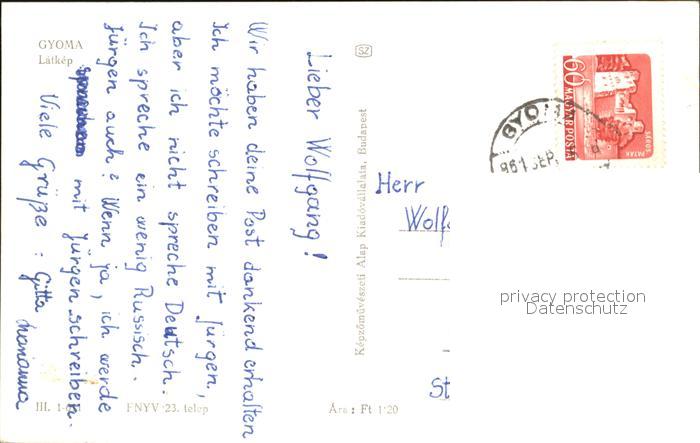 GYOMA
Látkép
Lieber Wolfgang!
Wir haben deine Post dankend erhalten
Ich möchte schreiben mit Jürgen,
aber ich nicht spreche Deutsch.
Ich spreche ein wenig Russisch.
Jürgen auch? Wenn ja, ich werde
mit Jürgen schreiben.
Viele Grüße: Gitta
Marianna
III. 1-
FNYV 23. telep
Ára: Ft 1'20
Képzőművészeti Alap Kiadóvállalata, Budapest
SZ
60
MAGYAR POSTA
SÁROS
PATAK
GYOMA
961 SEP.
Herr
Wolf
St
privacy protection
Datenschutz